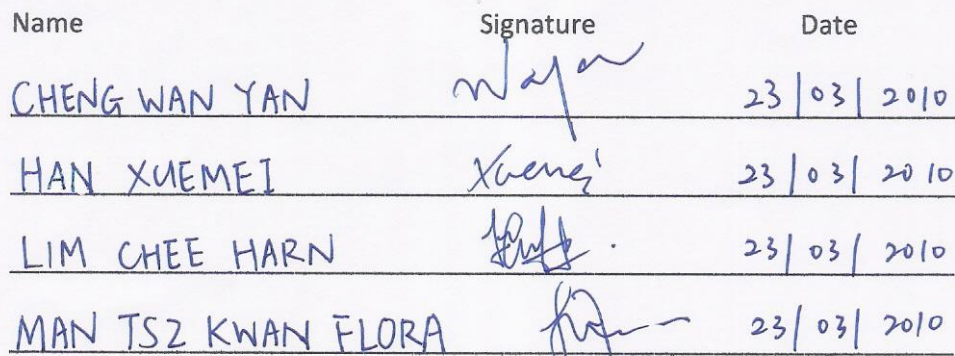 Name Signature Date
CHENG WAN YAN 23/03/2010
HAN XUEMEI Xuemei 23/03/2010
LIM CHEE HARN 23/03/2010
MAN TSZ KWAN FLORA 23/03/2010